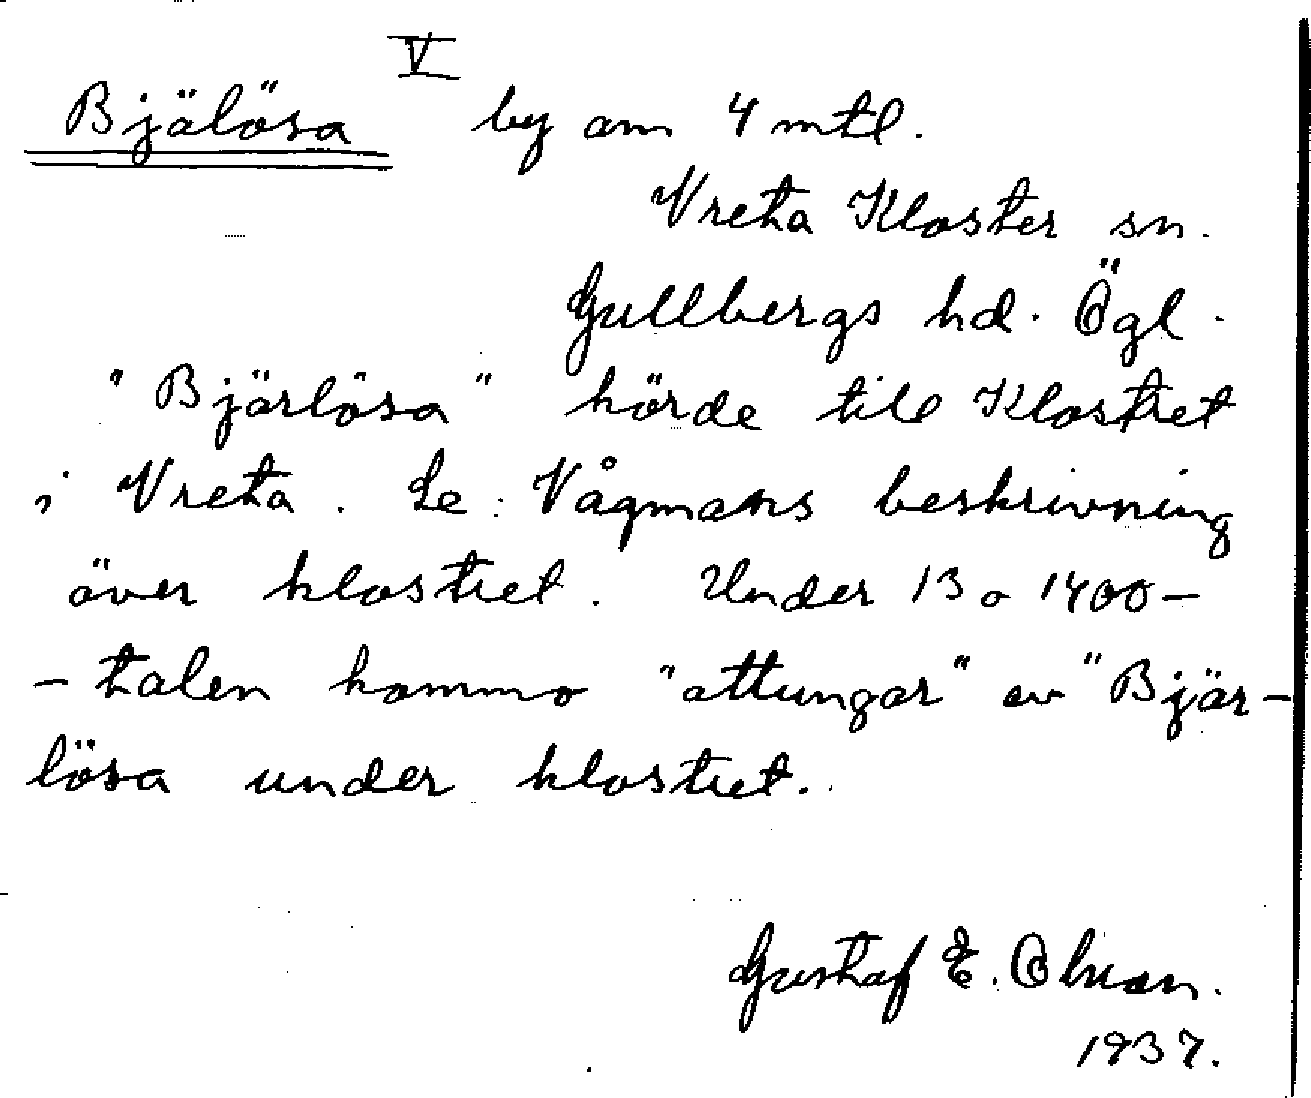 V
Bjälösa by om 4 mtl.
Vreta Kloster sn.
Gullbergs hd. Ögl.
"Bjärlösa" hörde till Klostret
i Vreta. Se: Vågmans beskrivning
över klostret. Under 13 o 1400-
-talen kommo "attungar" av "Bjär-
lösa under klostret.
Gustaf E.
1937.